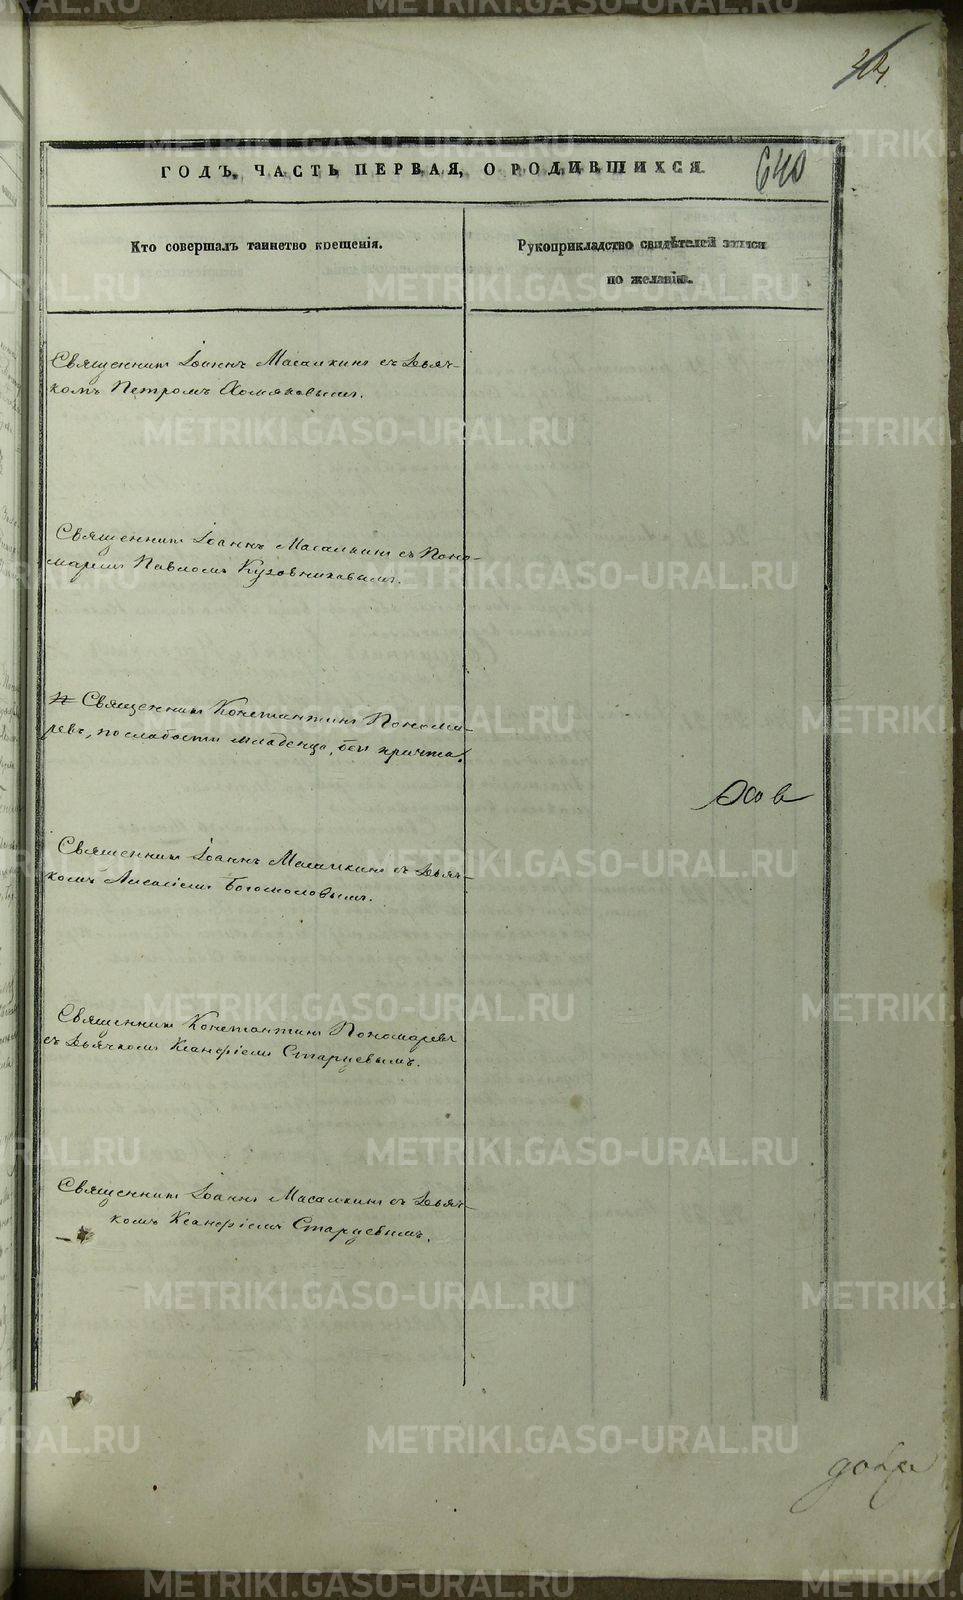 ГОДЪ, ЧАСТЬ ПЕРВАЯ, О РОДИВШИХСЯ.
640
Кто совершалъ таинство крещенія.
Рукоприкладство свидѣтелей записи
по желанію.
Священникъ Іоаннъ Масалкинъ съ Дьяч-
комъ Петромъ Хомяковымъ.
Священникъ Іоаннъ Масалкинъ съ Поно-
маремъ Павломъ Кузовниковымъ.
Священникъ Константинъ Понома-
ревъ, по слабости младенца, безъ причта.
Священникъ Іоаннъ Масалкинъ съ Дьяч-
комъ Алексіемъ Богомоловымъ.
Священникъ Константинъ Пономаревъ
съ Дьячкомъ Ксанфіемъ Старцевымъ.
Священникъ Іоаннъ Масалкинъ съ Дьяч-
комъ Ксанфіемъ Старцевымъ.
METRIKI.GASO-URAL.RU